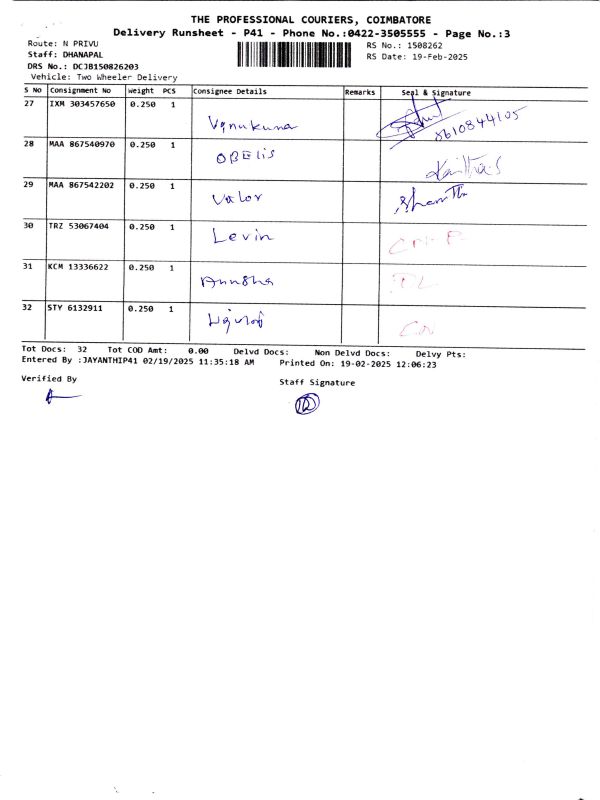 THE PROFESSIONAL COURIERS, COIMBATORE
Delivery Runsheet - P41 - Phone No.:0422-3505555 - Page No.:3
Route: N PRIVU RS No.: 1508262
Staff: DHANAPAL RS Date: 19-Feb-2025
DRS No.: DCJB150826203
Vehicle: Two Wheeler Delivery
S No Consignment No weight PCS Consignee Details Remarks Seal & Signature
27 IXM 303457650 0.250 1 8610844105
28 MAA 867540970 0.250 1 OBELIS
29 MAA 867542202 0.250 1 Valor
30 TRZ 53067404 0.250 1 Levin
31 KCM 13336622 0.250 1 Anusha
32 STY 6132911 0.250 1
Tot Docs: 32 Tot COD Amt: 0.00 Delvd Docs: Non Delvd Docs: Delvy Pts:
Entered By :JAYANTHIP41 02/19/2025 11:35:18 AM Printed On: 19-02-2025 12:06:23
Verified By Staff Signature